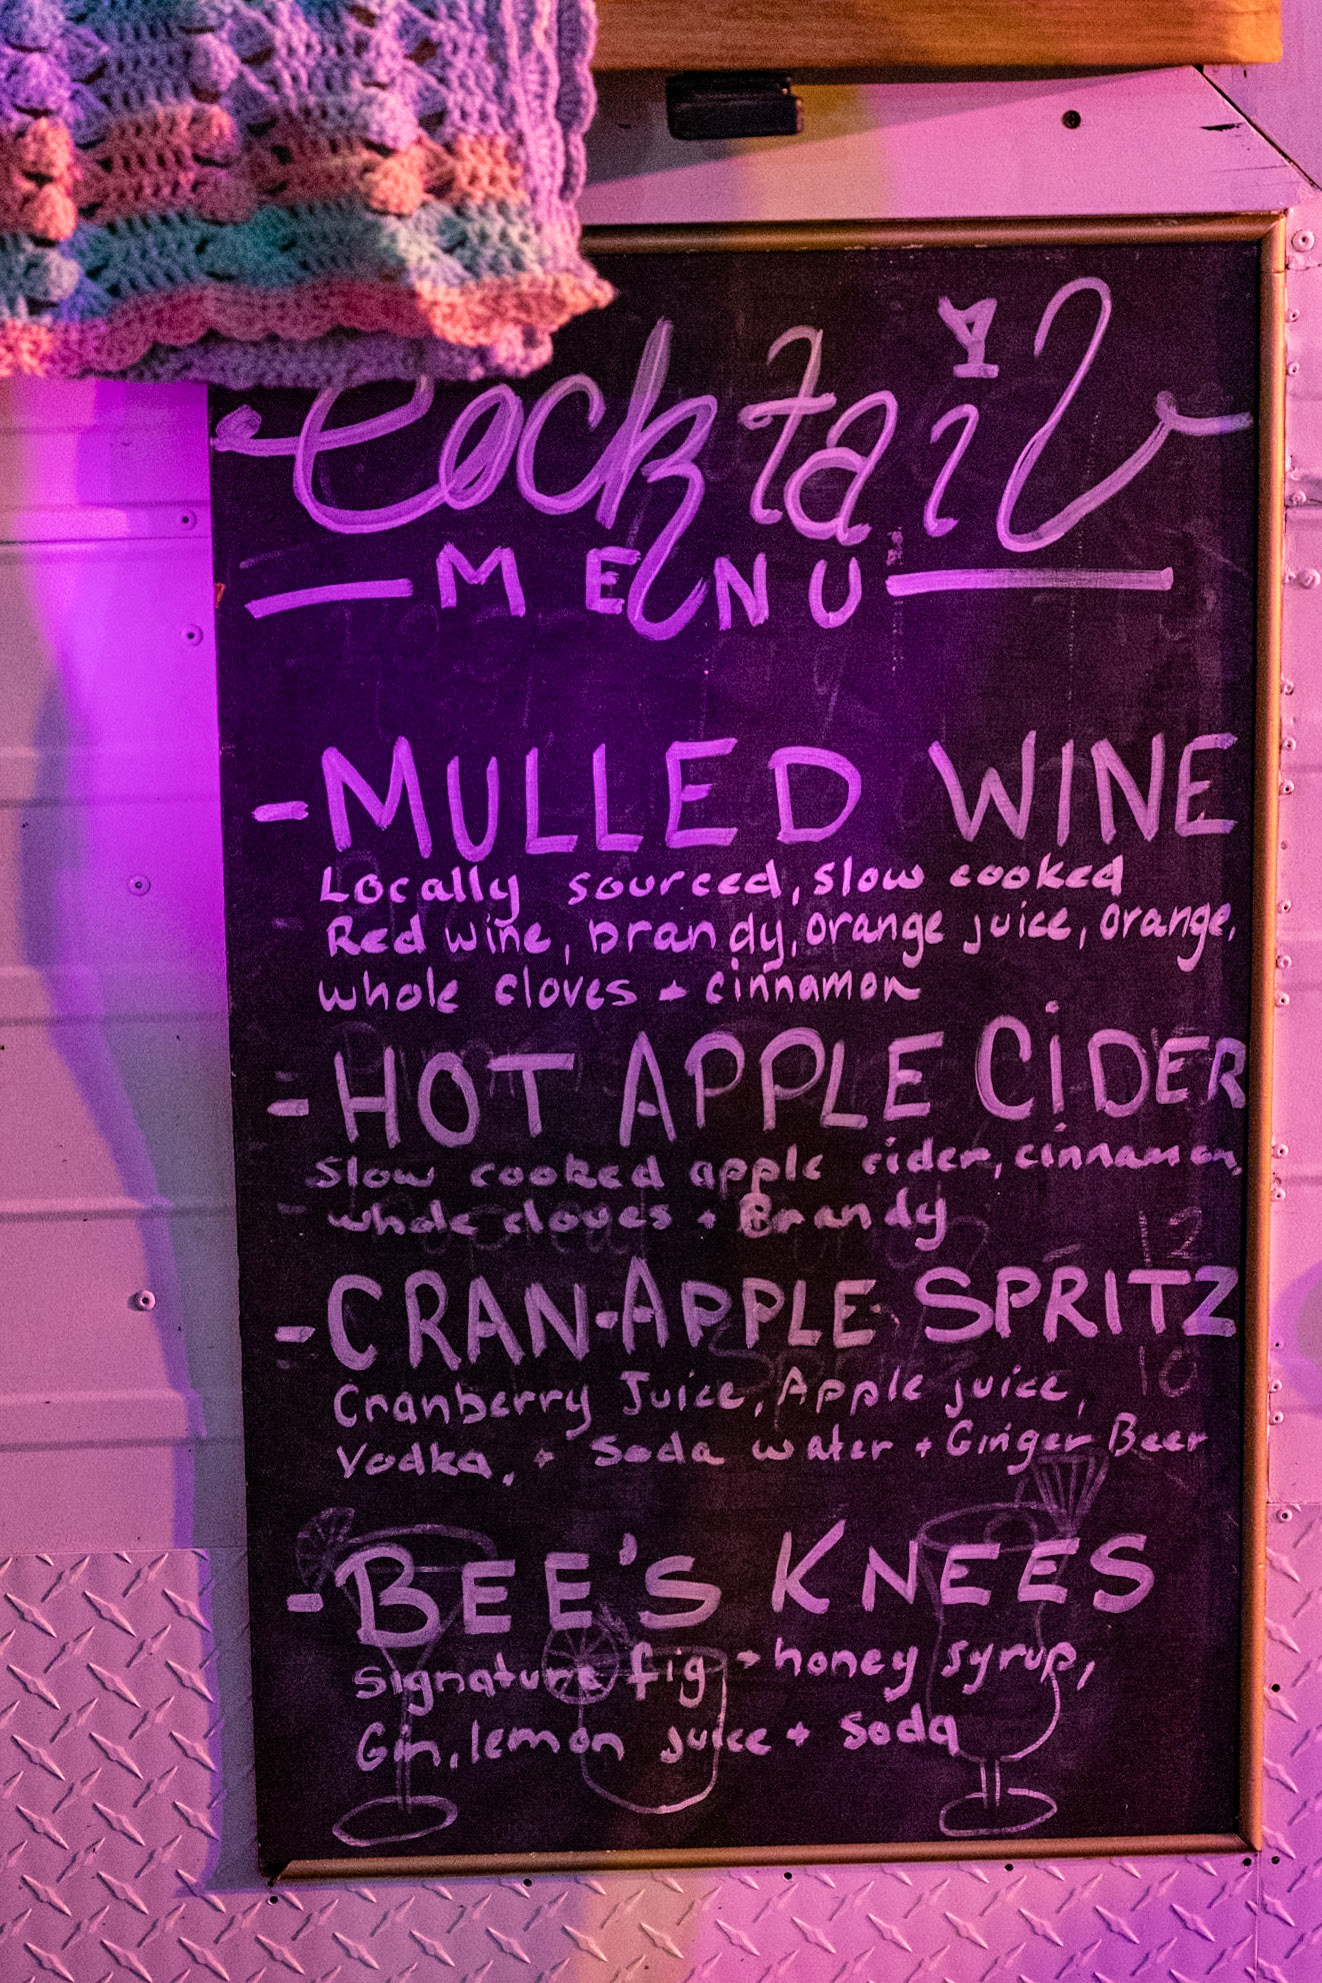 Cocktail
MENU
- MULLED WINE
Locally sourced, slow cooked
Red wine, brandy, orange juice, orange,
whole cloves + cinnamon
- HOT APPLE CiDER
Slow cooked apple cider, cinnamon,
whole cloves + Brandy
12
- CRAN-APPLE SPRITZ
10
Cranberry Juice, Apple juice,
Vodka, + Soda water + Ginger Beer
- BEE'S KNEES
signature fig + honey syrup,
Gin, lemon juice + Soda